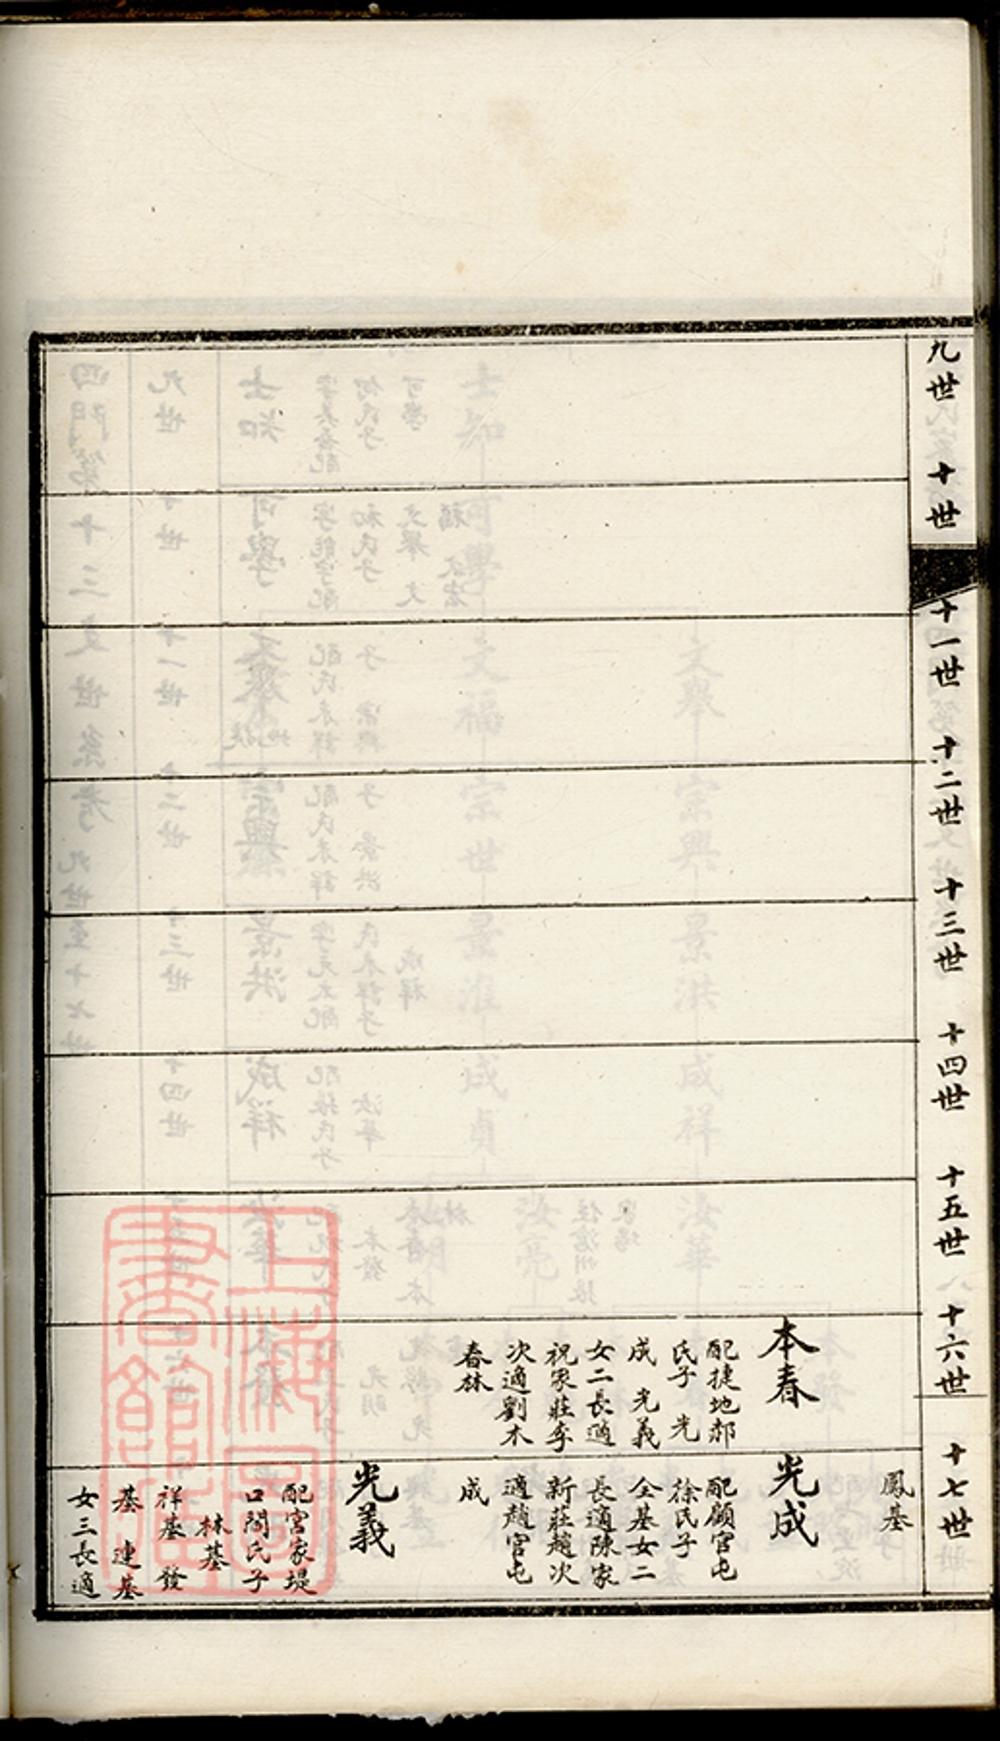 九世 十世 十一世 十二世 十三世 十四世 十五世 十六世 十七世
鳳基
本春
配捷地郝
氏子 光
成 光義
女二長適
祝家莊李
次適劉木
春林
光成
配顧官屯
徐氏子
全基女二
長適陳家
新莊趙次
適趙官屯
成
光義
配宮家堤
口閻氏子
林基
祥基 發
基 連基
女三長適
上海圖書館藏